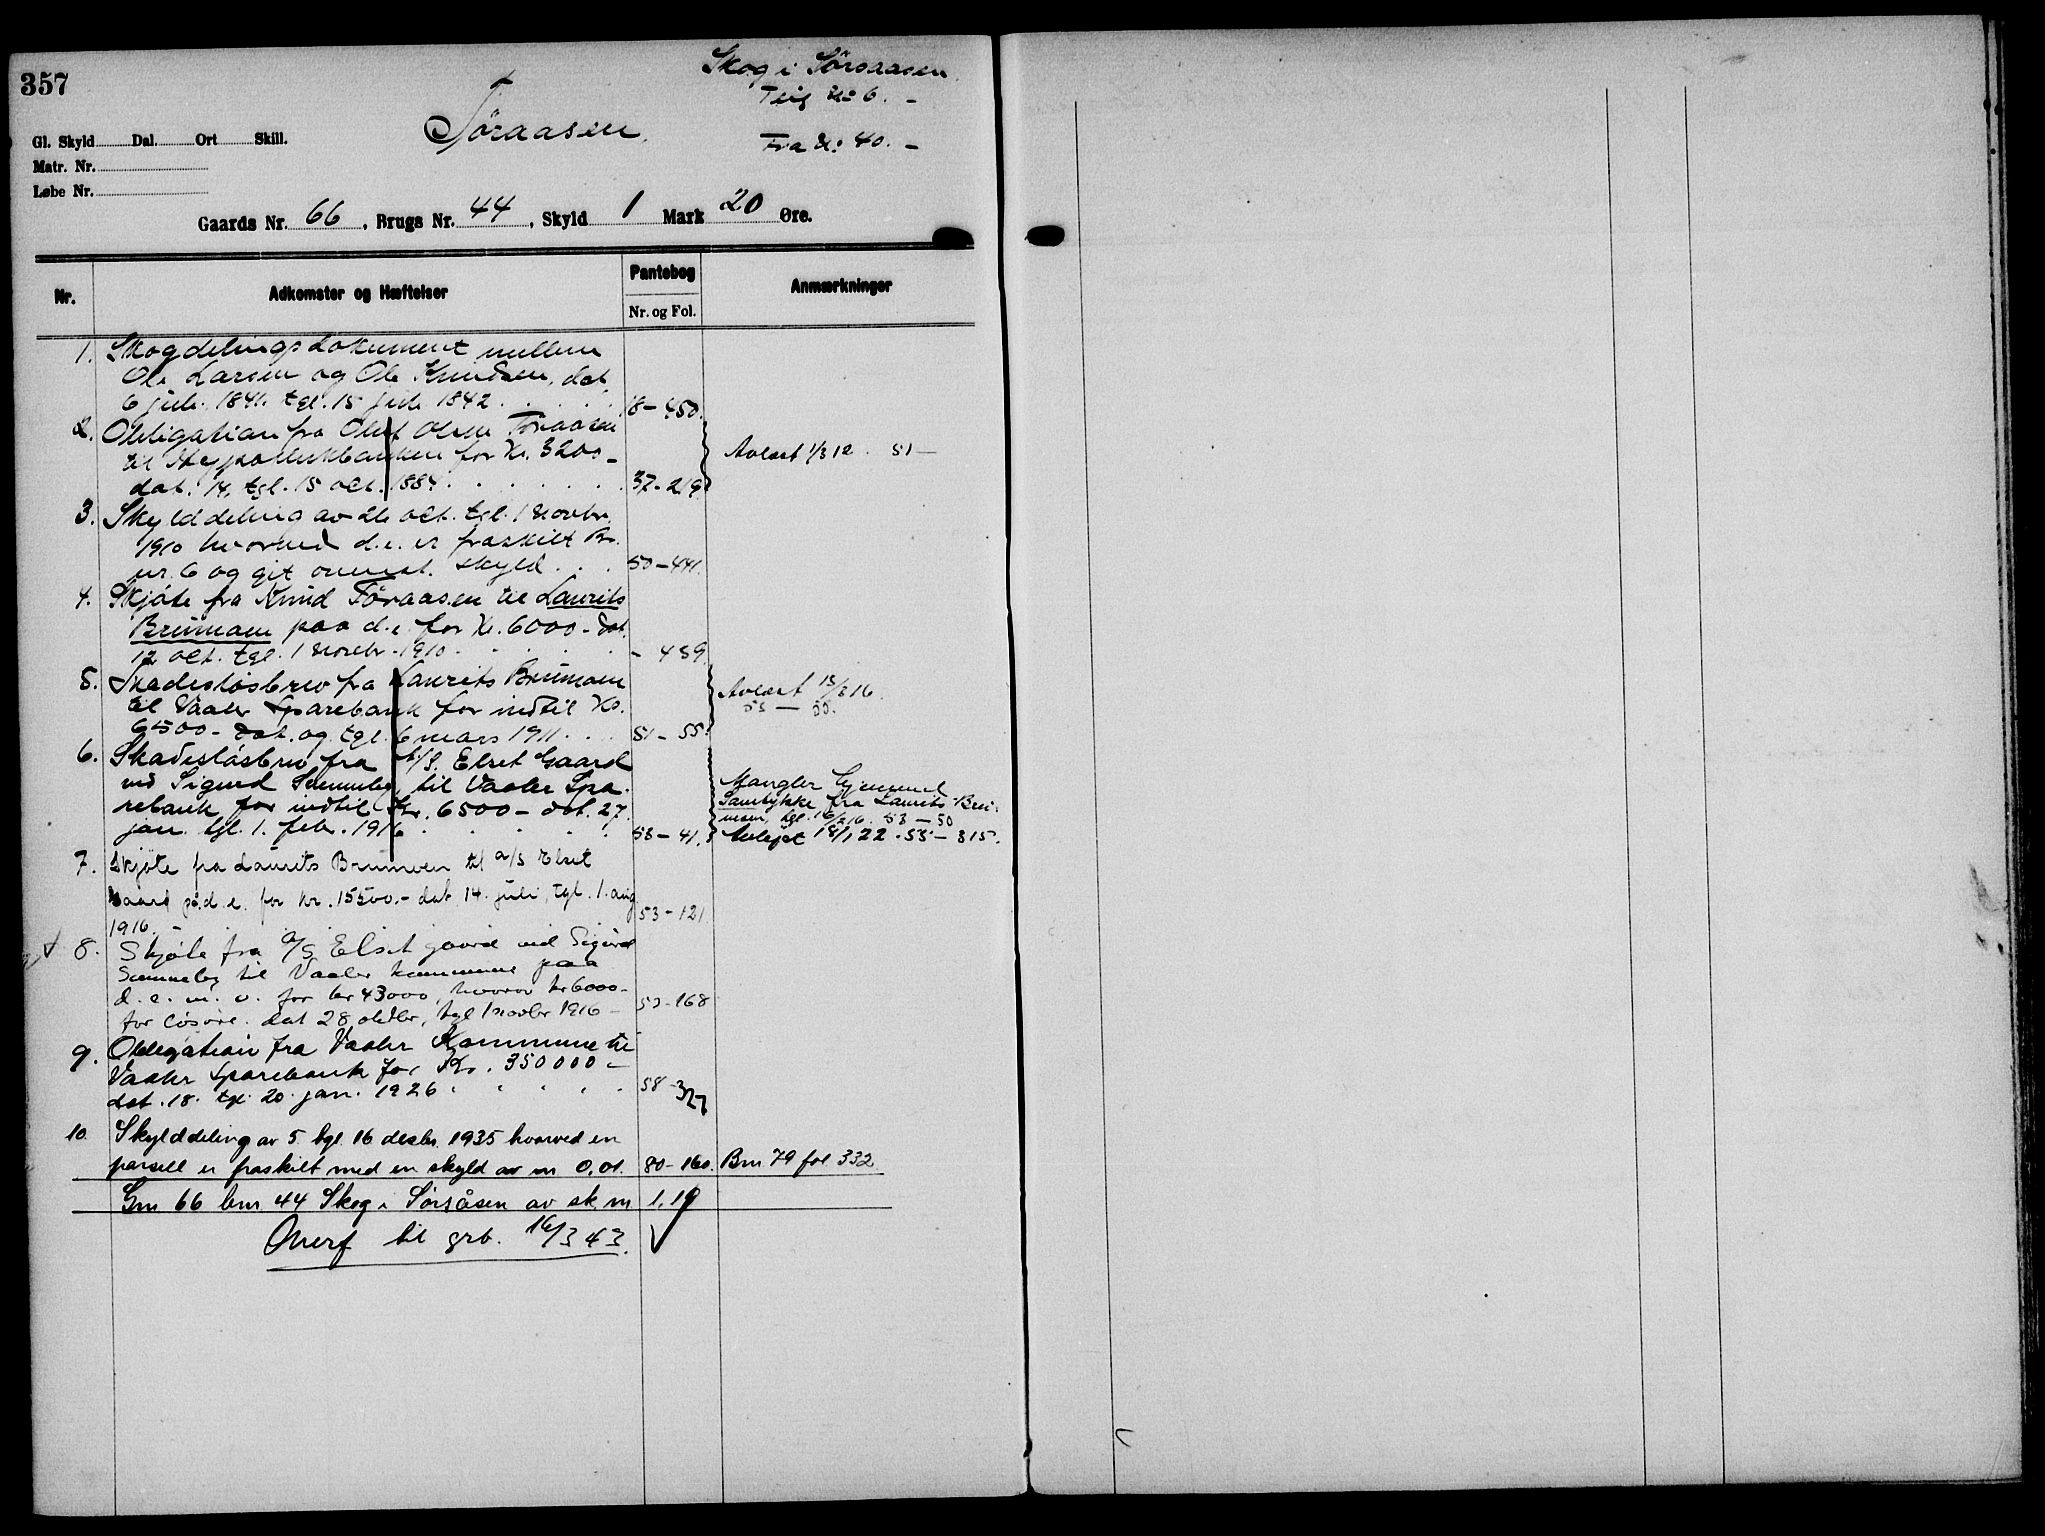 357
Skog i Sörsaasen
Teig No 6. -
Töraasen.
Fra No 40. -
Gl. Skyld Dal. Ort Skill.
Matr. Nr.
Løbe Nr.
Gaards Nr. 66, Brugs Nr. 44, Skyld 1 Mark 20 Øre.
Nr. Adkomster og Hæftelser Pantebog Nr. og Fol. Anmærkninger
1. Skogdelingsdokument mellem
Ole Larsen og Ole Knudsen, dat.
6 juli 1841. tgl. 15 juli 1842 . . . 8 - 450.
2. Obligation fra Oluf Olsen Töraasen
til Hypothekbanken for Kr. 3200 - Avlæst 1/3 12. 51 -
dat. 14, tgl. 15 oct. 1884 . . . 37 - 219.
3. Skylddeling av 26 oct. tgl. 1 Novbr.
1910 hvorved d.e. er fraskilt Br.
nr. 6 og git ovennt. skyld . . . 50 - 441.
4. Skjöte fra Knud Töraasen til Laurits
Brumoen paa d.e. for Kr. 6000 - dat.
12 oct. tgl. 1 Novebr. 1910 . . . - 489.
5. Skadeslösbrev fra Laurits Brumoen Avlæst 15/3 16.
til Vaaler Sparebank for indtil Kr. 53 - 55.
6500 - dat. og tgl. 6 mars 1911 . . . 51 - 55.
6. Skadeslösbrev fra A/S. Elset Gaard
ved Sigurd Semmeley til Vaaler Spa- Mangler hjemmel
rebank for indtil Kr. 6500 - dat. 27. Samtykke fra Laurits Bru-
moen, tgl. 16/2 16. 53 - 50
jan. tgl. 1. febr. 1916 . . . 53 - 41. Avlyst 18/1 22. 55 - 315.
7. Skjöte fra Laurits Brumoen til a/s Elset
Gaard på d.e. for kr. 15500.- dat. 14. juli, tgl. 1. aug
1916. - 53 - 121.
8. Skjöte fra A/S Elset gaard ved Sigurd
Semmeley til Vaaler kommune paa
d.e. m.v. for kr 43000, hvorav kr 6000 - 53 - 168
for lösöre. dat 28 oktbr, tgl 1 novbr 1916 -
9. Obligation fra Vaaler Kommune til
Vaaler Sparebank for Kr. 350000 -
dat. 18. tgl. 20. jan. 1926 . . . 58 - 327
10. Skylddeling av 5. tgl. 16 desbr. 1935 hvorved en
parsell er fraskilt med en skyld av m 0,01. 80 - 160. Bnr 79 fol 332
Gnr 66 bnr 44 Skog i Sörsåsen av sk m 1.19
Overf til grb. 16/3 43.